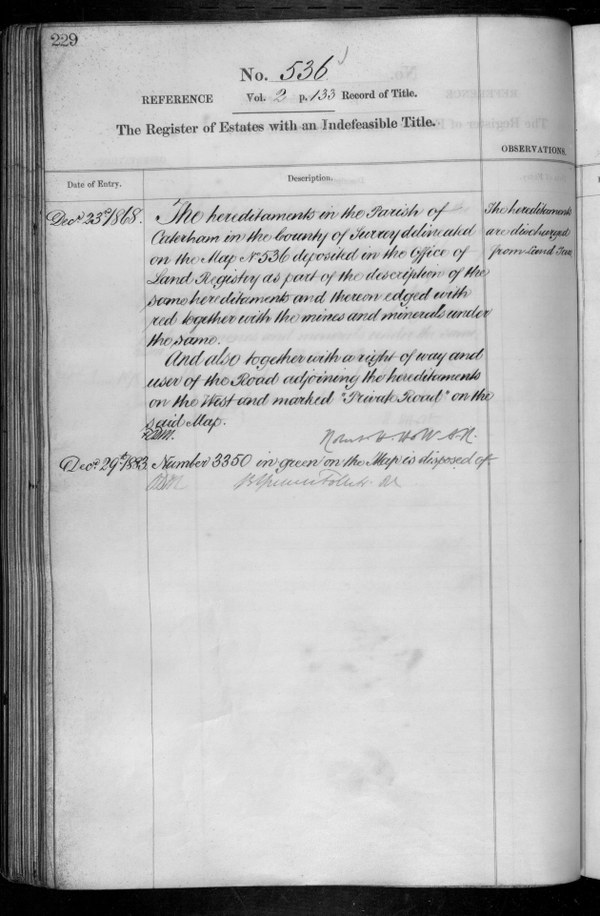 229
No. 536
REFERENCE Vol. 2 p. 133 Record of Title.
The Register of Estates with an Indefeasible Title.
OBSERVATIONS.
Date of Entry.
Description.
Decr. 23rd 1868.
The hereditaments in the Parish of
Caterham in the County of Surrey delineated
on the Map No 536 deposited in the Office of
Land Registry as part of the description of the
same hereditaments and thereon edged with
red together with the mines and minerals under
the same.
And also together with a right of way and
user of the Road adjoining the hereditaments
on the West and marked "Private Road" on the
said Map.
The hereditaments
are discharged
from Land Tax
Decr. 29th 1883. Number 3350 in green on the Map is disposed of